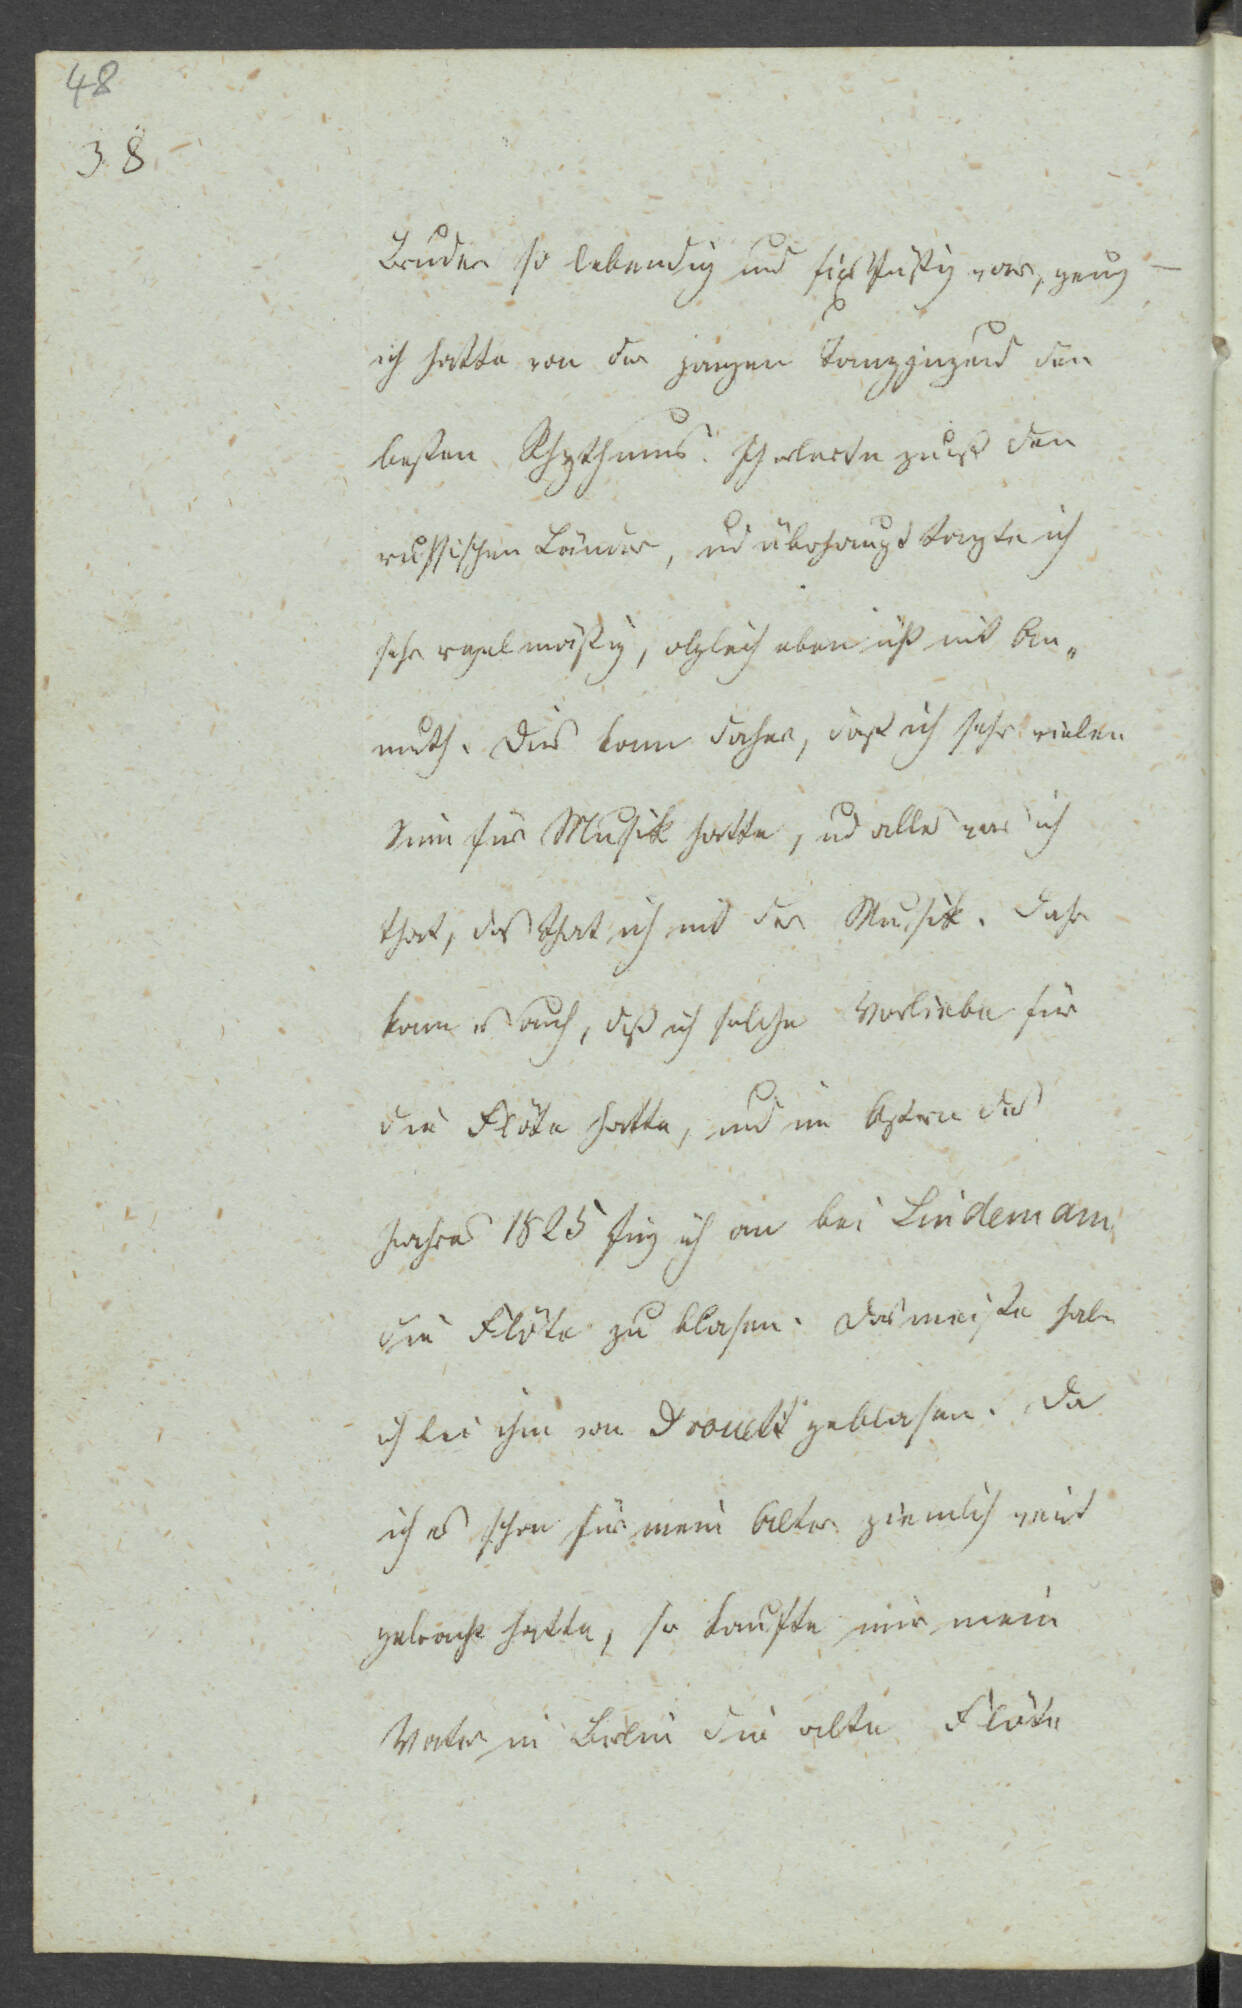 48
38
Bruder so lebendig und war, genug —
ich hatte von der ganzen Tanzjugend den
besten Rhythmus. Ich lernte zuerst den
russischen Länder, und überhaupt tanzte ich
sehr regelmäßig, obgleich eben nicht mit An„
muth. Dies kam daher, daß ich sehr vielen
Sinn für Musik hatte, und alles was ich
that, das that ich mit der Musik. Daher
kam es auch, daß ich solche Vorliebe für
die Flöte hatte, und im Ostern des
Jahres 1825 fing ich an bei Lindemann
die Flöte zu blasen. Das meiste habe
ich bei ihm von Drouett geblasen. Da
ich es schon für mein Alter ziemlich weit
gebracht hatte, so kaufte mir mein
Vater in Berlin die alte Flöte